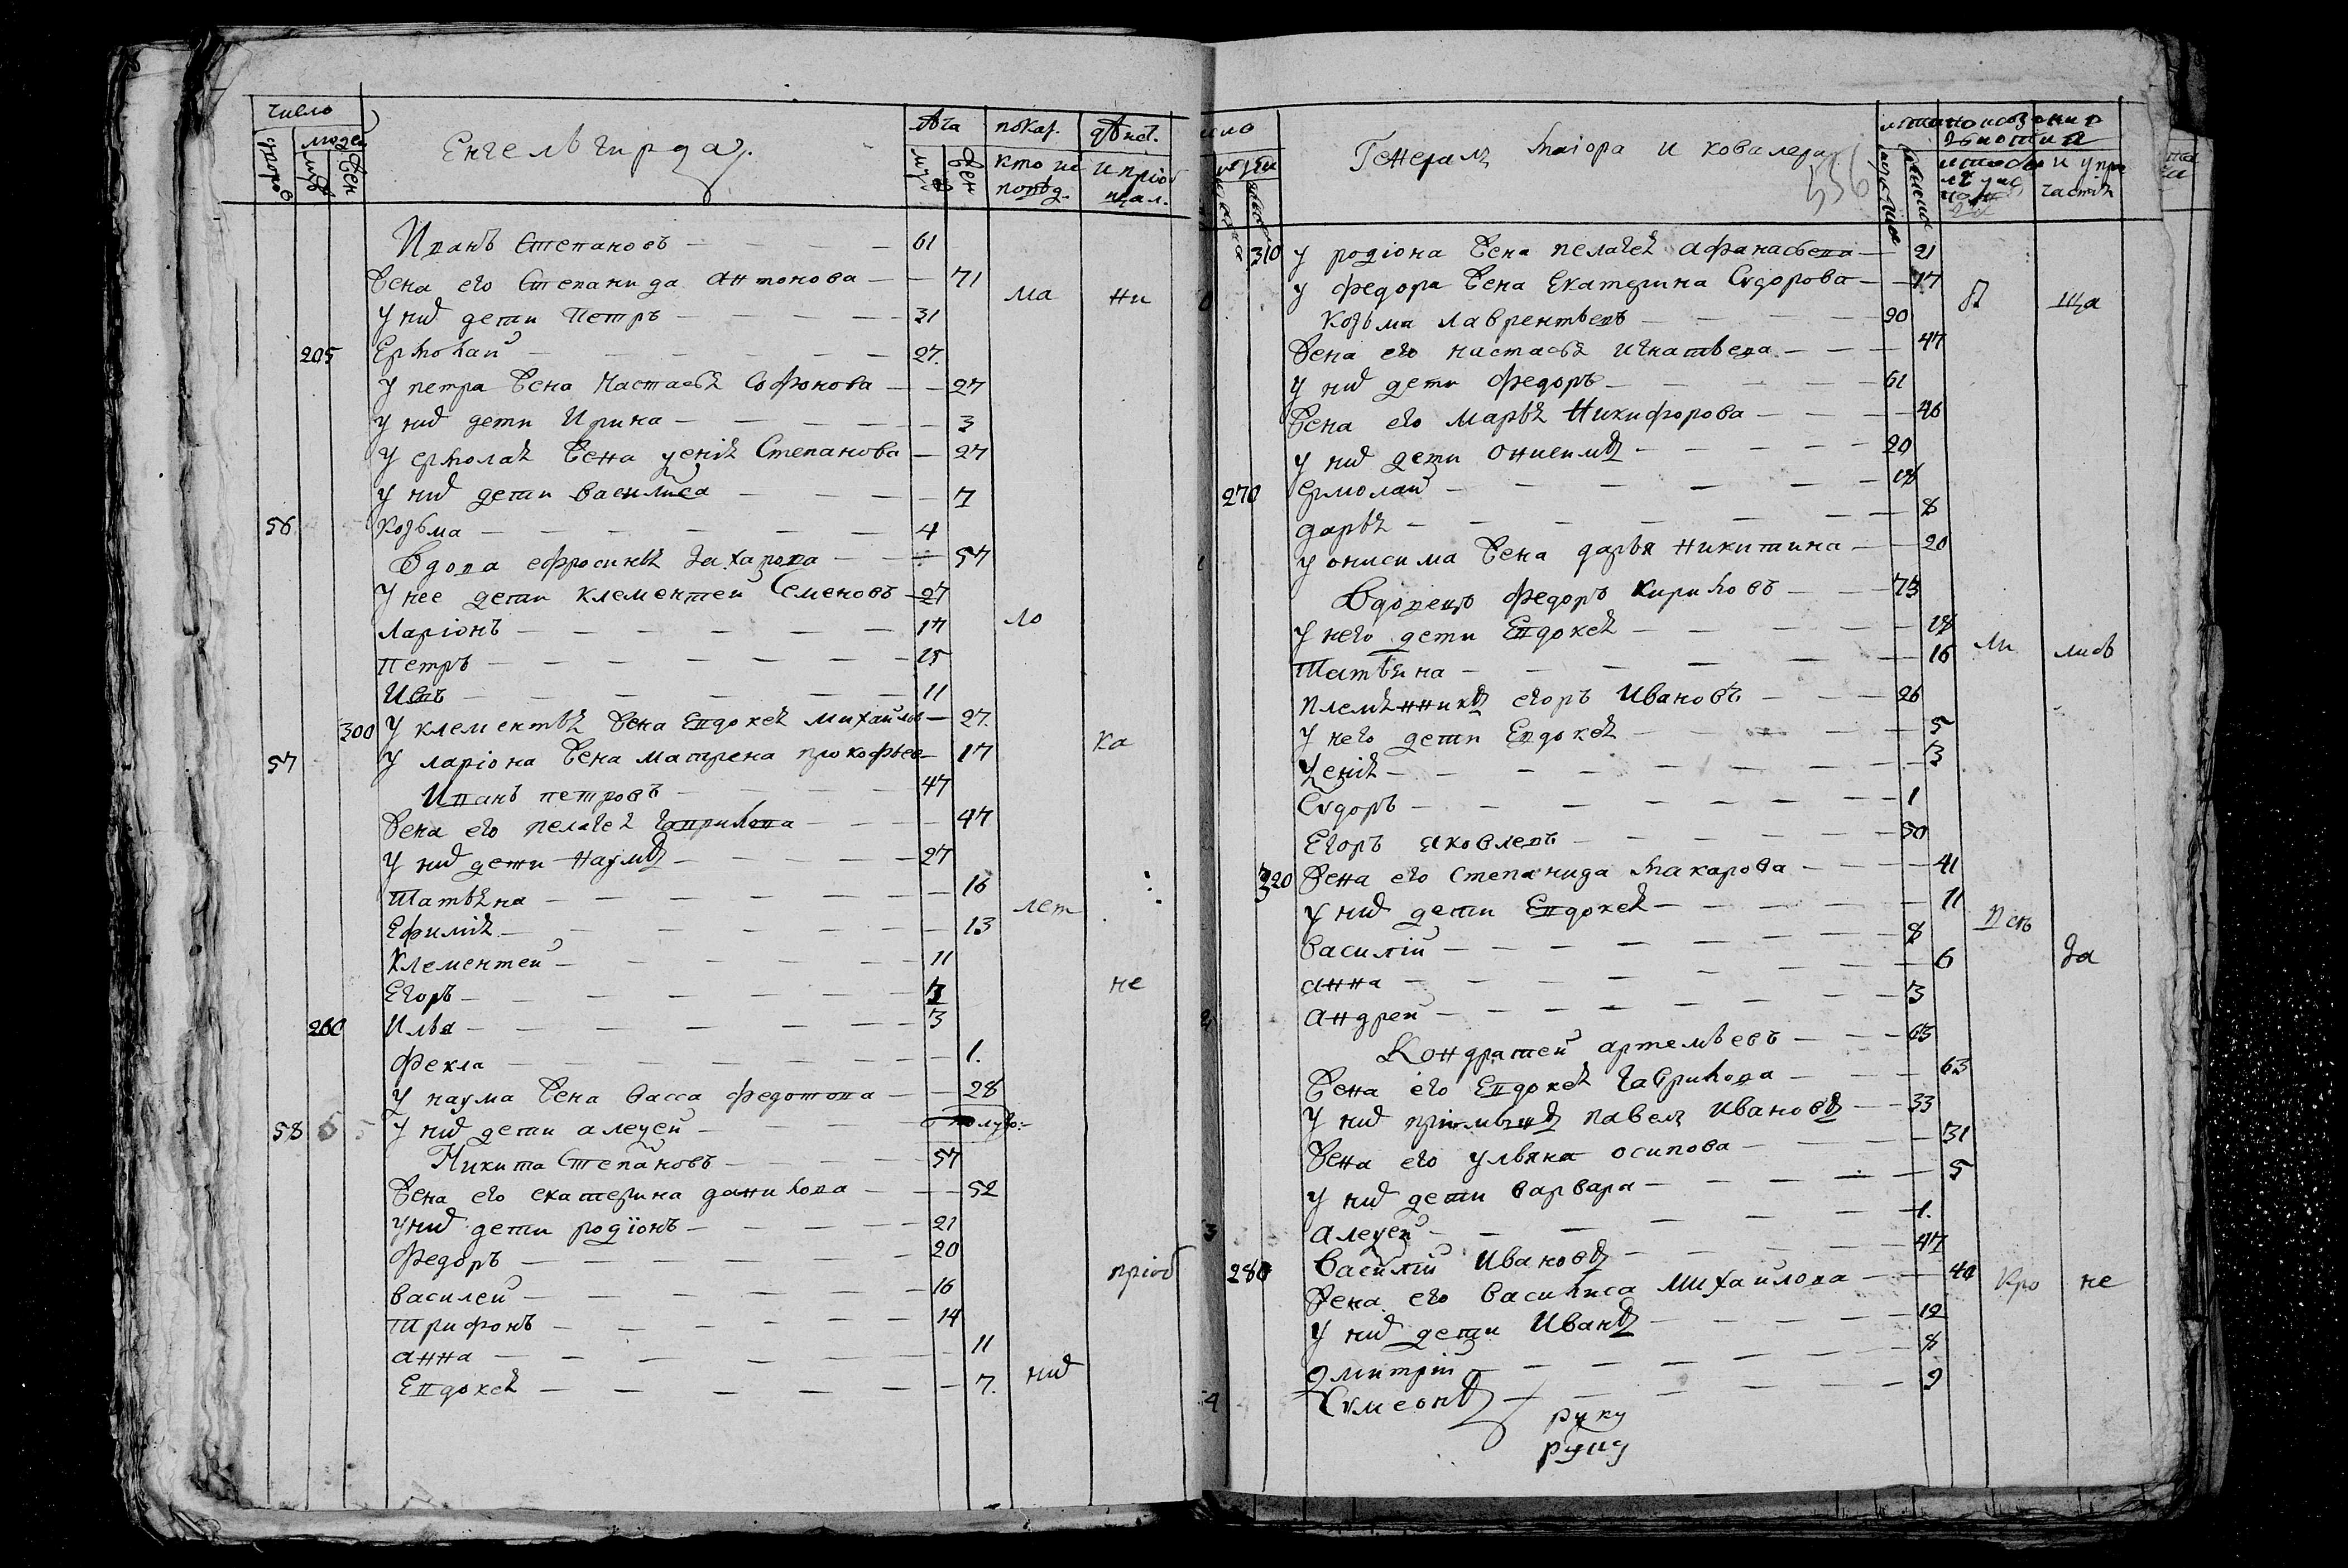 число
людей
муж
жен
Енгельгирда
лѣта
муж
жен
показ.
действ.
кто ис
повѣд.
и пріоб
щал.
Иванъ Степановъ 61
Жена его Степанида Антонова 71
У них дети Петръ 31
ма ни
205 Ермолай 27
У петра жена Настасья Софонова 27
У них дети Ирина 3
У ермолая жена ѯенія Степанова 27
У них дети василиса 7
56 Козьма 4
Вдова ефросинья Захарова 57
У нее дети клементей Семеновъ 27
Ларіонъ 17
ло
петръ 15
Иванъ 11
300 У клементья жена Евдокея михайлов 27
57 У ларіона жена матрена прокофьев 17
ка
Иванъ петровъ 47
Жена его пелагея гаврилова 47
У них дети наумъ 27
татьяна 16
лет
Ефимія 13
Клементей 11
Егоръ
не
260 Илья 3
Фекла 1
У наума жена васса федотова 28
58 У них дети алеѯей полуго:
Никита Степановъ 57
Жена его екатерина данилова 52
У них дети родіонъ 21
Федоръ 20
василей 16
пріоб
Трифонъ 14
анна 11
Евдокея 7
них
Генералъ Маіора и ковалера
336
310 у родіона жена пелагея афанасьева 21
у федора жена Екатерина Сидорова 17
В ща
Козьма лаврентьевъ 90
Жена его настасья игнатьева 47
У них дети федоръ 61
Жена его марья Никифорова 46
У них дети онисимъ 20
270 Ермолай 18
дарья 8
у онисима жена дарья никитина 20
Вдовецъ федоръ кириловъ 73
У него дети Евдокея 18
ли лись
Татьяна 16
племянникъ егоръ Ивановъ 26
У него дети Евдокея 5
ѯенія 3
Сидоръ 1
Егоръ яковлевъ 50
320 Жена его степанида макарова 41
У них дети Евдокея 11
всь
василій 8
анна 6
за
андрей 3
Кондратей артемьевъ 65
Жена его Евдокея гаврилова 63
У них пріимышъ павелъ Ивановъ 33
Жена его ульяна осипова 31
У них дети варвара 5
алеѯей 1
280 Василій Ивановъ 47
Жена его василиса михайлова 40
Кро не
У них дети Иванъ 12
дмитрій 8
Симеонъ 9
руку